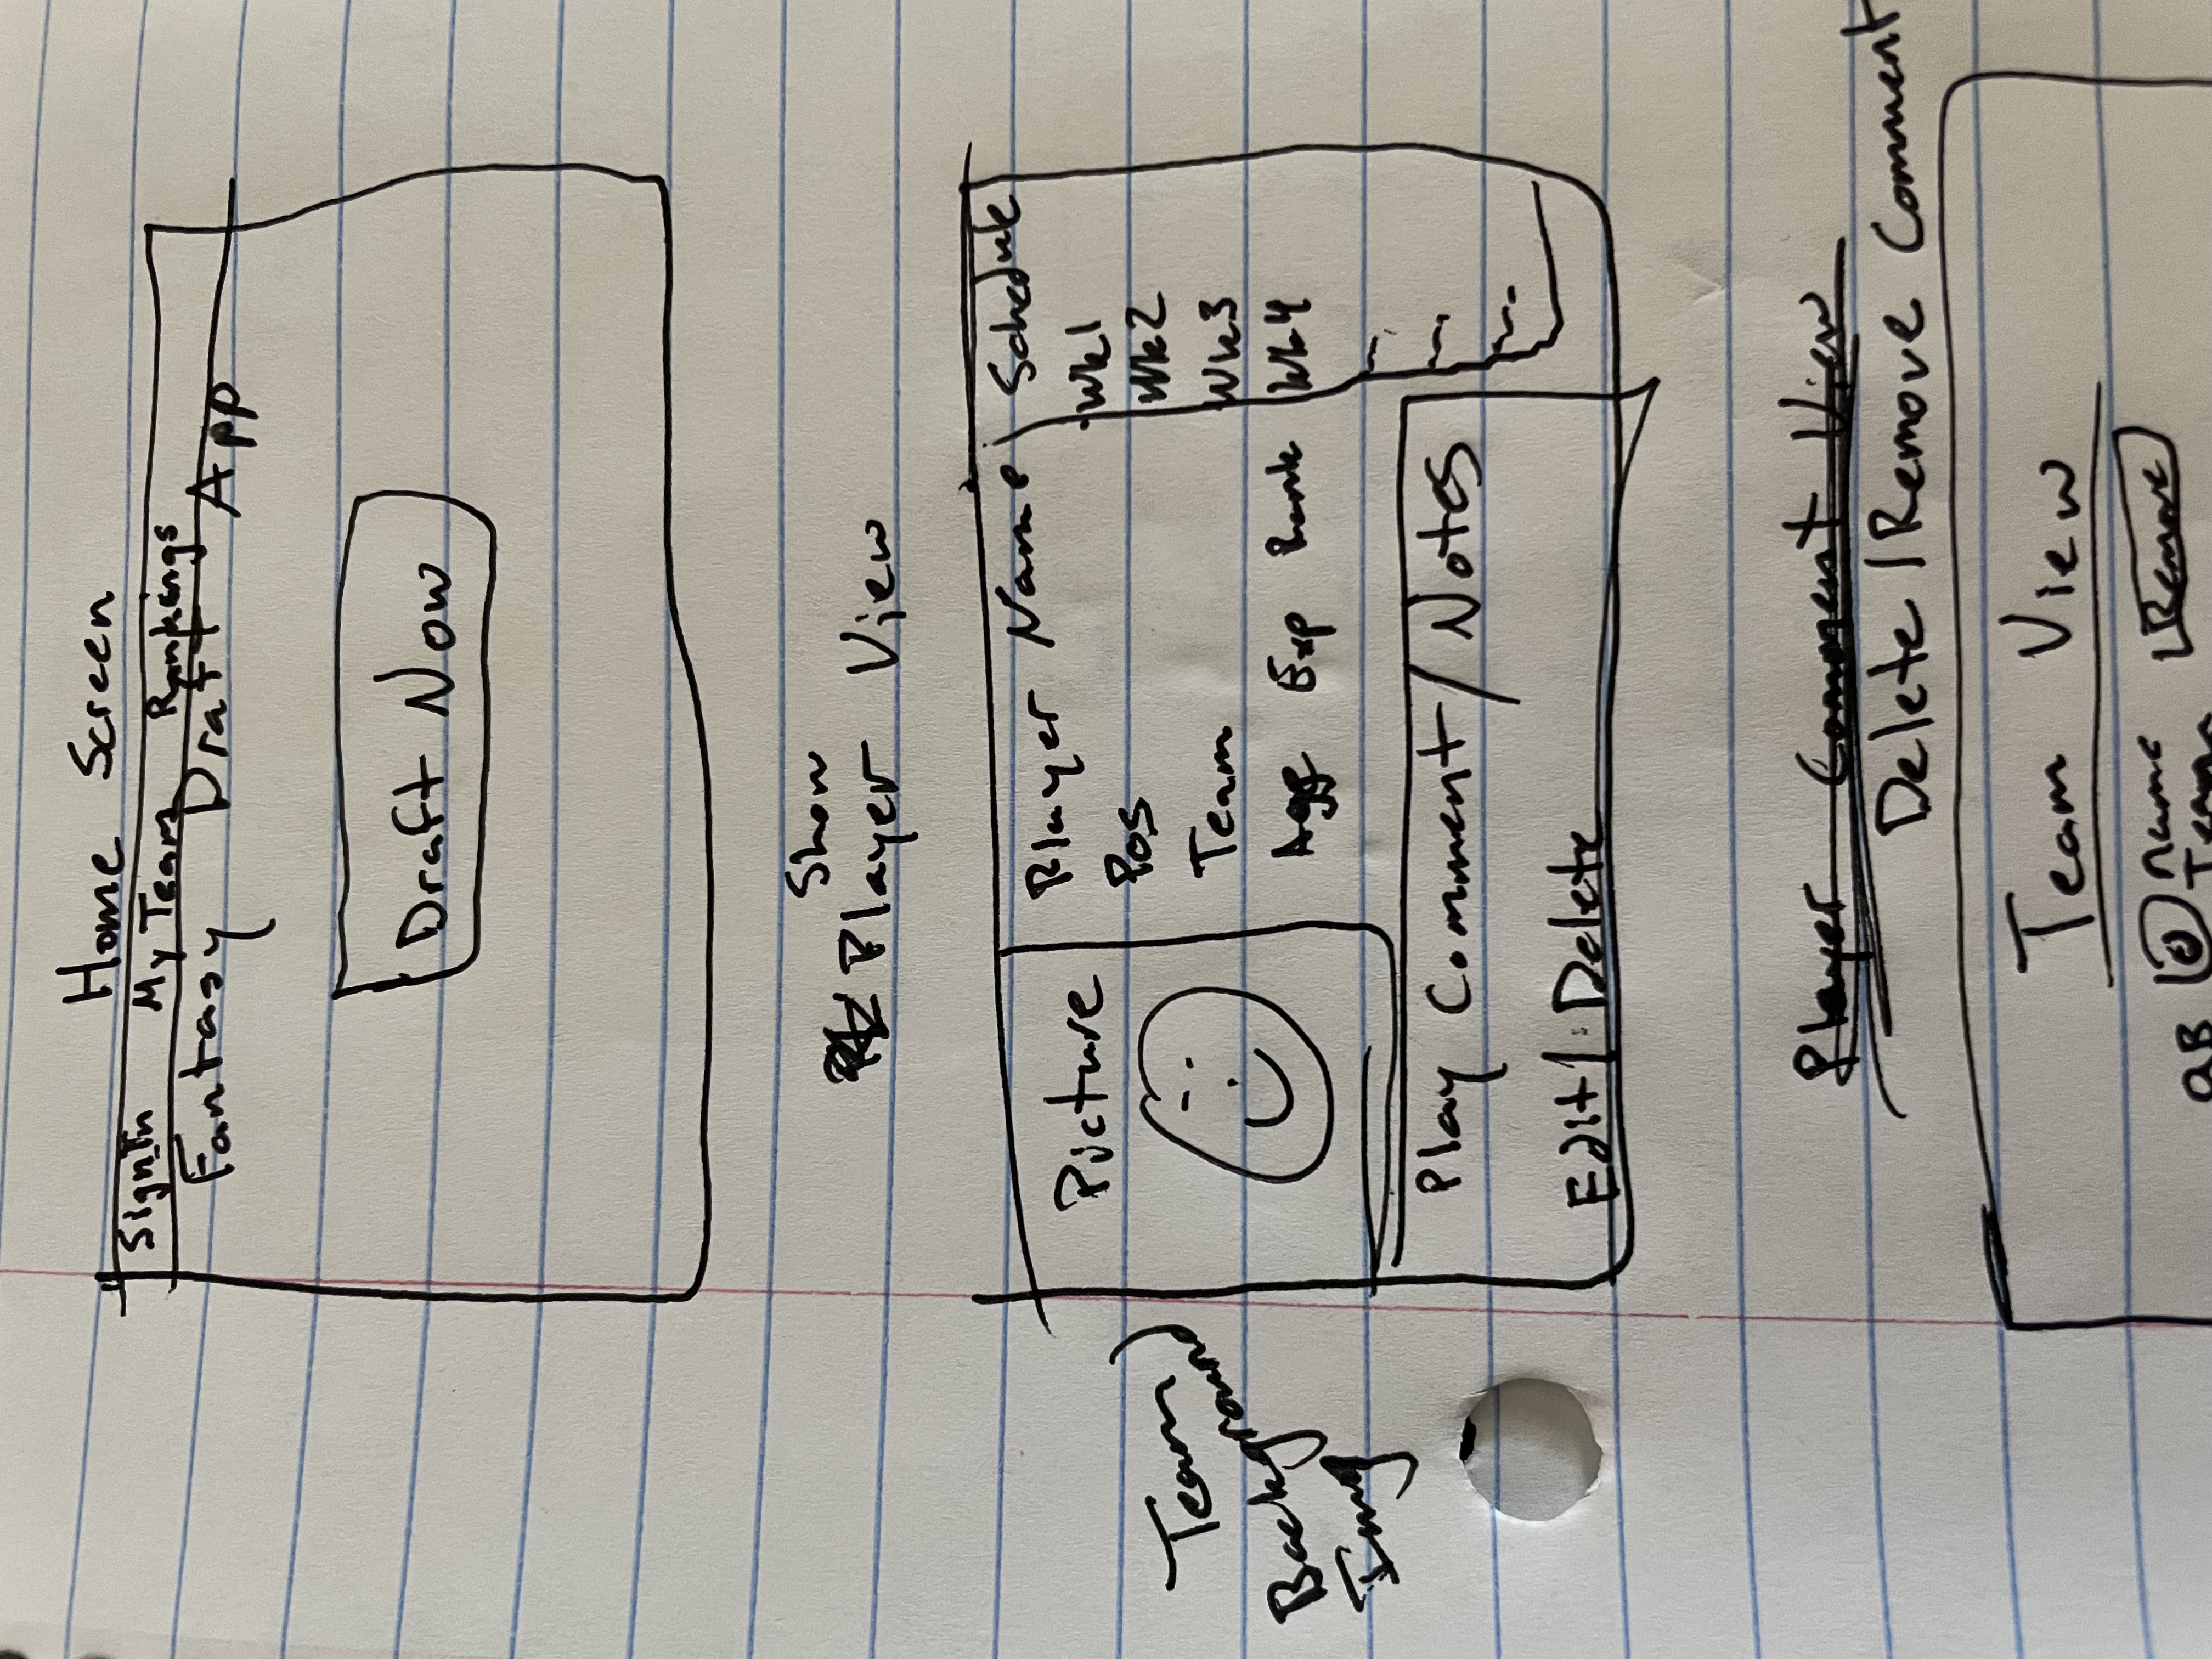 Home Screen
Sign In My Team Rankings
Fantasy Draft App
Draft Now
Show
Player View
Picture
Player Name
Pos
Team
Agg Exp Rank
Schedule
Wk1
Wk2
Wk3
Wk4
Team
Background
Img
Play Comment / Notes
Edit / Delete
Player Comment View
Delete / Remove Comment
Team View
QB name Remove
Team